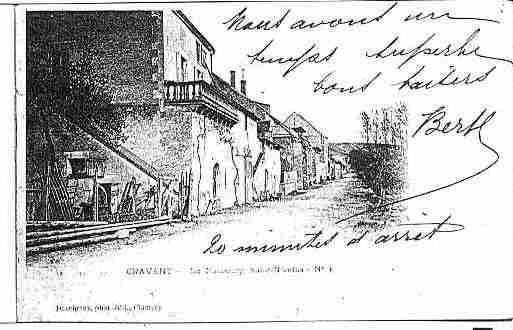 Nous avons un
temps superbe
bons baisers
Berth
20 minutes d'arrêt
CRAVANT - Le Faubourg Saint-Nicolas - N° 1
phot. édit.